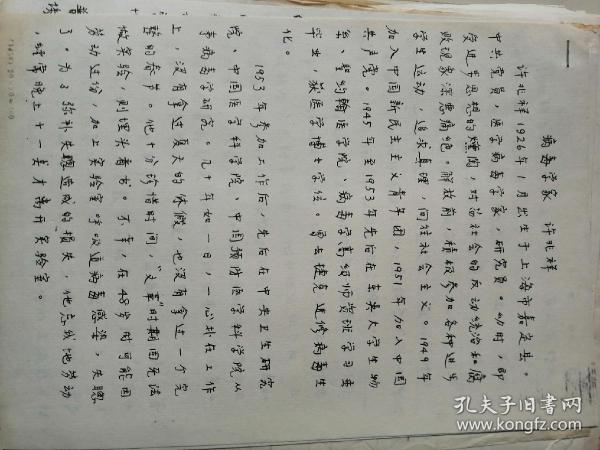 病毒学家 许兆祥
许兆祥1926年1月出生于上海市嘉定县。
中共党员，医学病毒学家，研究员。幼时，即
受进步思想的熏陶，对旧社会的反动统治和腐
败现象深恶痛绝。解放前，积极参加各种进步
学生运动，追求真理，向往社会主义。1949年
加入中国新民主主义青年团，1951年加入中国
共产党。1945年至1953年先后在东吴大学生物
系、圣约翰医学院、病毒学高级师资班学习
毕业，获医学博士学位。曾去捷克进修病毒生
化。
1953年参加工作后，先后在中央卫生研究
院、中国医学科学院、中国预防医学科学院从
事病毒学研究。几十年如一日，一心扑在工作
上，没有拿过夏天的休假，也没有拿过一个完
整的春节。他十分珍惜时间，“文革”时期因无法
做实验，则埋头看书。不幸，在48岁时可能因
劳动过分，加上实验室呼吸道病毒感染，失聪
了。为了弥补失聪造成的损失，他忘我地劳动
，经常晚上十一点才离开实验室。
孔夫子旧书网
www.kongfz.com